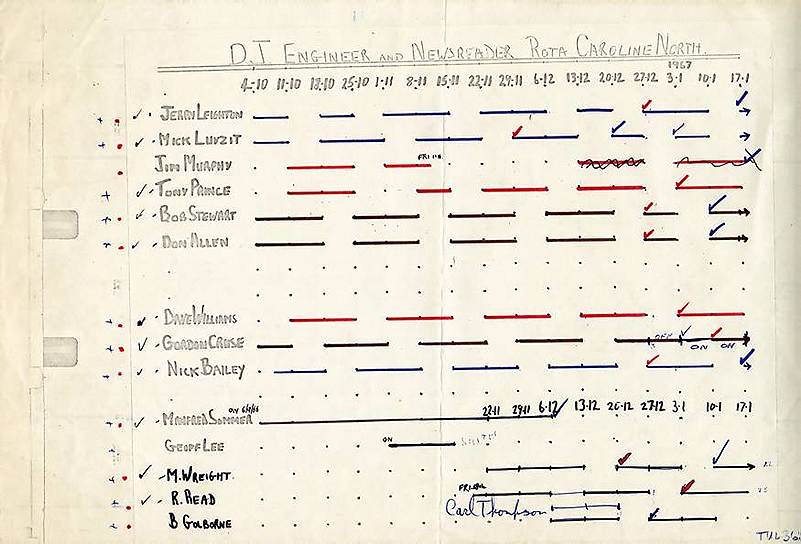 D.J. ENGINEER AND NEWSREADER ROTA CAROLINE NORTH.
1967
4-10 11-10 18-10 25-10 1-11 8-11 15-11 22-11 29-11 6-12 13-12 20-12 27-12 3-1 10-1 17-1
JERRY LEIGHTON
MICK LUVZIT
JIM MURPHY FRI 11th
TONY PRINCE
BOB STEWART
DON ALLEN
DAVE WILLIAMS
GORDON CRUSE OFF ON ON
NICK BAILEY
MANFRED SOMMER ON 22-11 29-11 6-12 13-12 20-12 27-12 3-1 10-1 17-1
GEOFF LEE ON
M. WREIGHT.
R. READ
Carl Thompson
B GOLBORNE